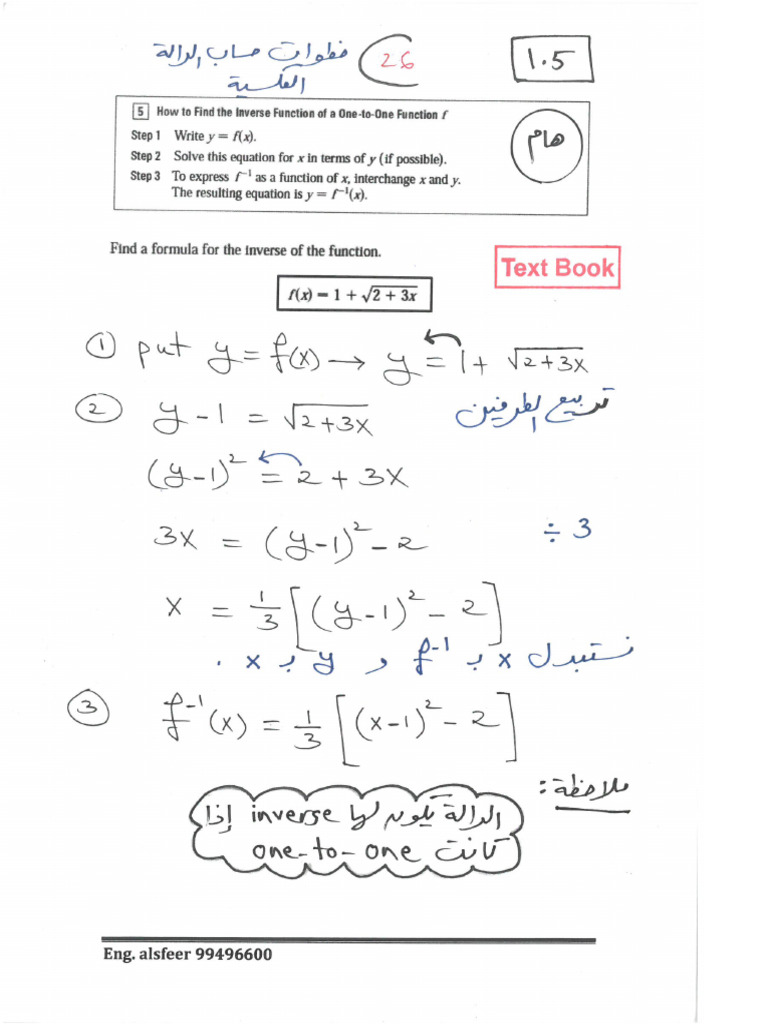 خطوات حساب الدالة
العكسية
26
1.5
5 How to Find the Inverse Function of a One-to-One Function f
Step 1 Write y = f(x).
Step 2 Solve this equation for x in terms of y (if possible).
Step 3 To express f⁻¹ as a function of x, interchange x and y.
The resulting equation is y = f⁻¹(x).
هام
Find a formula for the inverse of the function.
Text Book
f(x) = 1 + √(2 + 3x)
① put y = f(x) → y = 1 + √(2+3x)
② y - 1 = √(2+3x) تربيع الطرفين
(y-1)² = 2 + 3x
3x = (y-1)² - 2 ÷ 3
x = 1/3 [(y-1)² - 2]
نستبدل x بـ f⁻¹ و y بـ x .
③ f⁻¹(x) = 1/3 [(x-1)² - 2]
ملاحظة :
الدالة يكون لها inverse إذا
كانت one-to-one
Eng. alsfeer 99496600